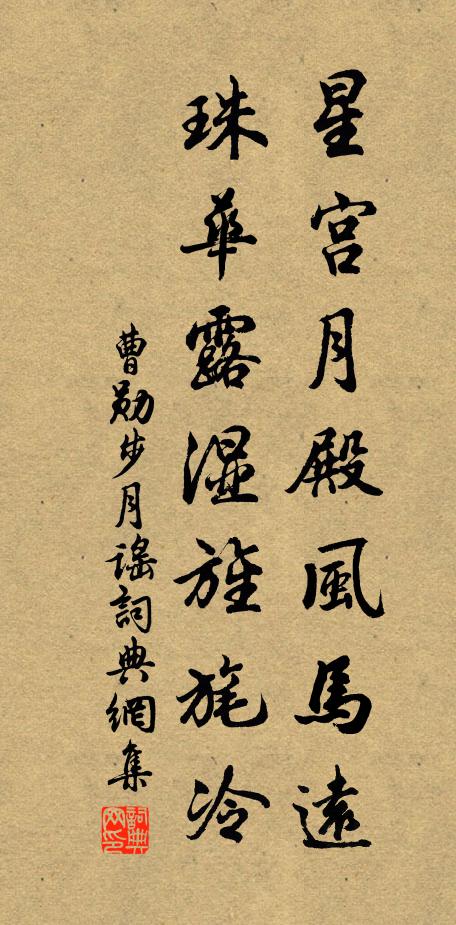 星宫月殿風馬遠
珠華露湿旌旄冷
曹勛步月謠詞典網集
詞典网印